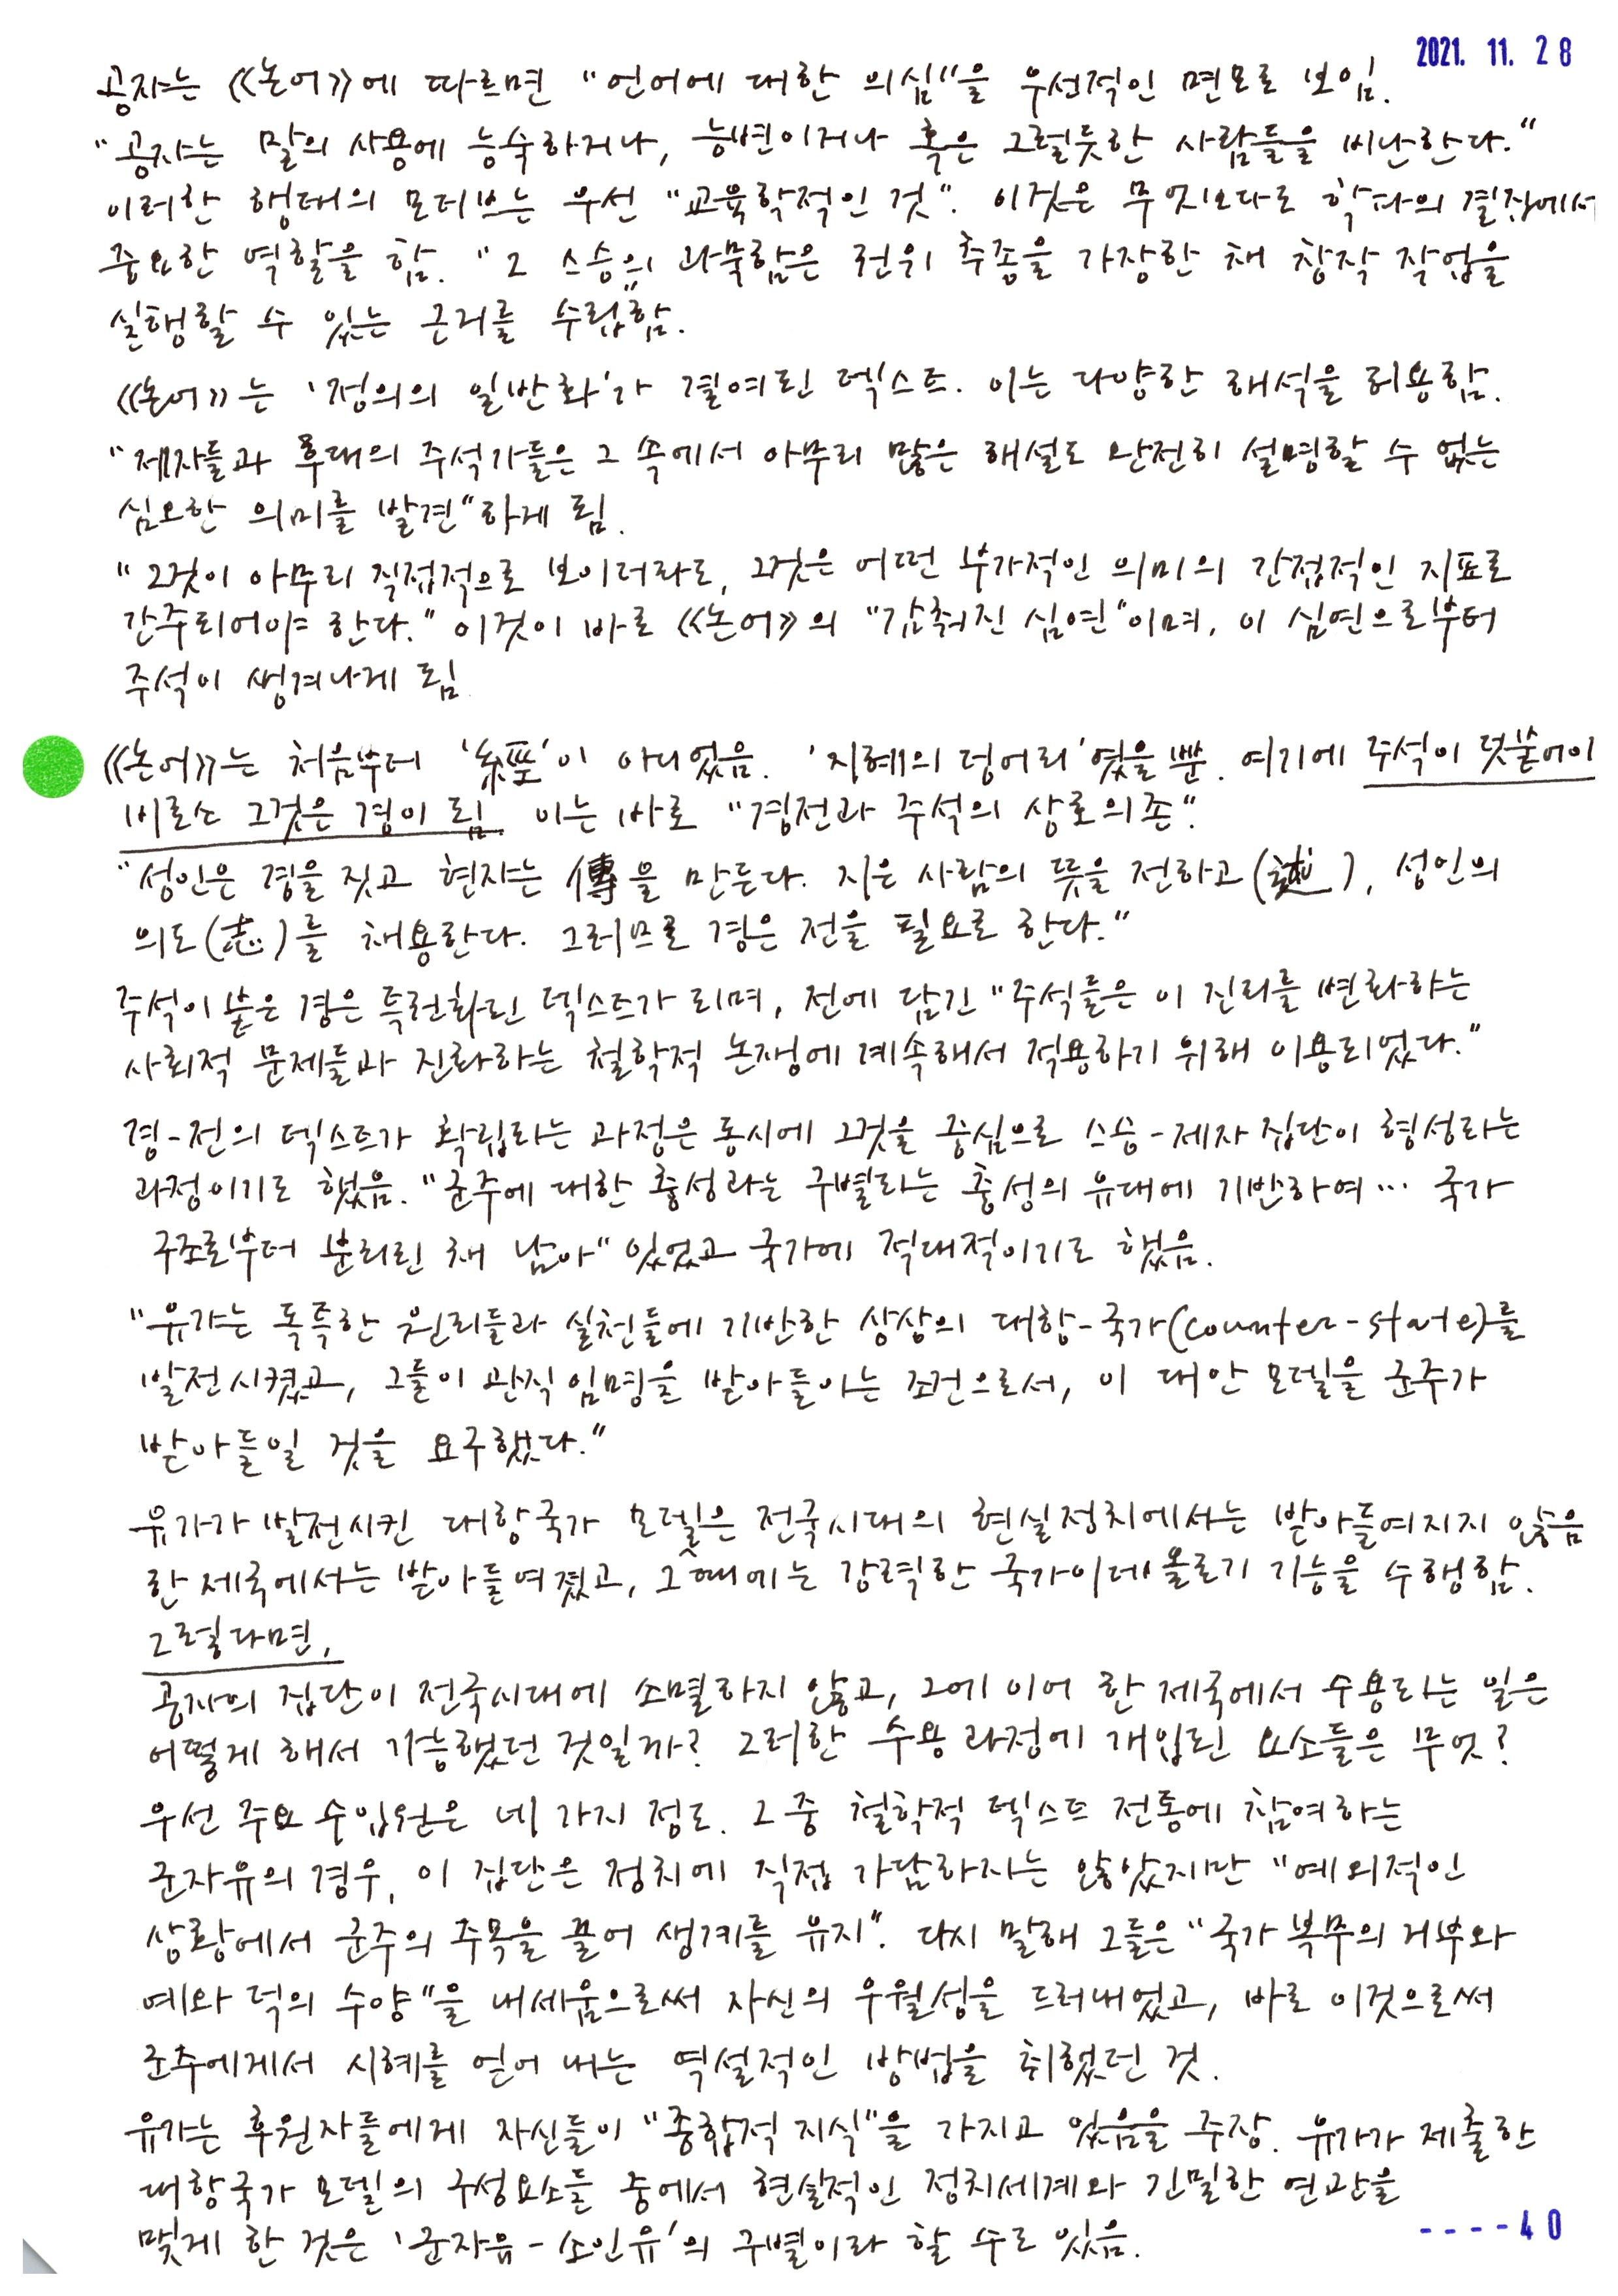 2021. 11. 28
공자는 《논어》에 따르면 "언어에 대한 의심"을 우선적인 면모로 보임.
"공자는 말의 사용에 능숙하거나, 능변이거나 혹은 그럴듯한 사람들을 비난한다."
이러한 행태의 모티브는 우선 "교육학적인 것". 이것은 무엇보다도 학파의 결집에서
중요한 역할을 함. "그 스승의 과묵함은 권위 추종을 가장한 채 창작 작업을
실행할 수 있는 근거를" 수립함.
《논어》는 '정의의 일반화'가 결여된 텍스트. 이는 다양한 해석을 허용함.
"제자들과 후대의 주석가들은 그 속에서 아무리 많은 해설도 완전히 설명할 수 없는
심오한 의미를 발견"하게 됨.
"그것이 아무리 직접적으로 보이더라도, 그것은 어떤 부가적인 의미의 간접적인 지표로
간주되어야 한다." 이것이 바로 《논어》의 "감춰진 심연"이며, 이 심연으로부터
주석이 생겨나게 됨
《논어》는 처음부터 '経'이 아니었음. '지혜의 덩어리'였을 뿐. 여기에 주석이 덧붙어야
비로소 그것은 경이 됨. 이는 바로 "경전과 주석의 상호의존".
"성인은 경을 짓고 현자는 傳을 만든다. 지은 사람의 뜻을 전하고(述), 성인의
의도(志)를 채용한다. 그러므로 경은 전을 필요로 한다."
주석이 붙은 경은 특권화된 텍스트가 되며, 전에 담긴 "주석들은 이 진리를 변화하는
사회적 문제들과 진화하는 철학적 논쟁에 계속해서 적용하기 위해 이용되었다."
경-전의 텍스트가 확립되는 과정은 동시에 그것을 중심으로 스승-제자 집단이 형성되는
과정이기도 했음. "군주에 대한 충성과는 구별되는 충성의 유대에 기반하여… 국가
구조로부터 분리된 채 남아" 있었고 국가에 적대적이기도 했음.
"유가는 독특한 원리들과 실천들에 기반한 상상의 대항-국가(counter-state)를
발전시켰고, 그들이 관직 임명을 받아들이는 조건으로서, 이 대안 모델을 군주가
받아들일 것을 요구했다."
유가가 발전시킨 대항국가 모델은 전국시대의 현실정치에서는 받아들여지지 않음
한 제국에서는 받아들여졌고, 그때에는 강력한 국가이데올로기 기능을 수행함.
그렇다면,
공자의 집단이 전국시대에 소멸하지 않고, 그에 이어 한 제국에서 수용되는 일은
어떻게 해서 가능했던 것일까? 그러한 수용 과정에 개입된 요소들은 무엇?
우선 주요 수입원은 네 가지 정도. 그 중 철학적 텍스트 전통에 참여하는
군자유의 경우, 이 집단은 정치에 직접 가담하지는 않았지만 "예외적인
상황에서 군주의 주목을 끌어 생계를 유지". 다시 말해 그들은 "국가 복무의 거부와
예와 덕의 수양"을 내세움으로써 자신의 우월성을 드러내었고, 바로 이것으로써
군주에게서 시혜를 얻어 내는 역설적인 방법을 취했던 것.
유가는 후원자들에게 자신들이 "종합적 지식"을 가지고 있음을 주장. 유가가 제출한
대항국가 모델의 구성요소들 중에서 현실적인 정치세계와 긴밀한 연관을
맺게 한 것은 '군자유-소인유'의 구별이라 할 수도 있음.
----40